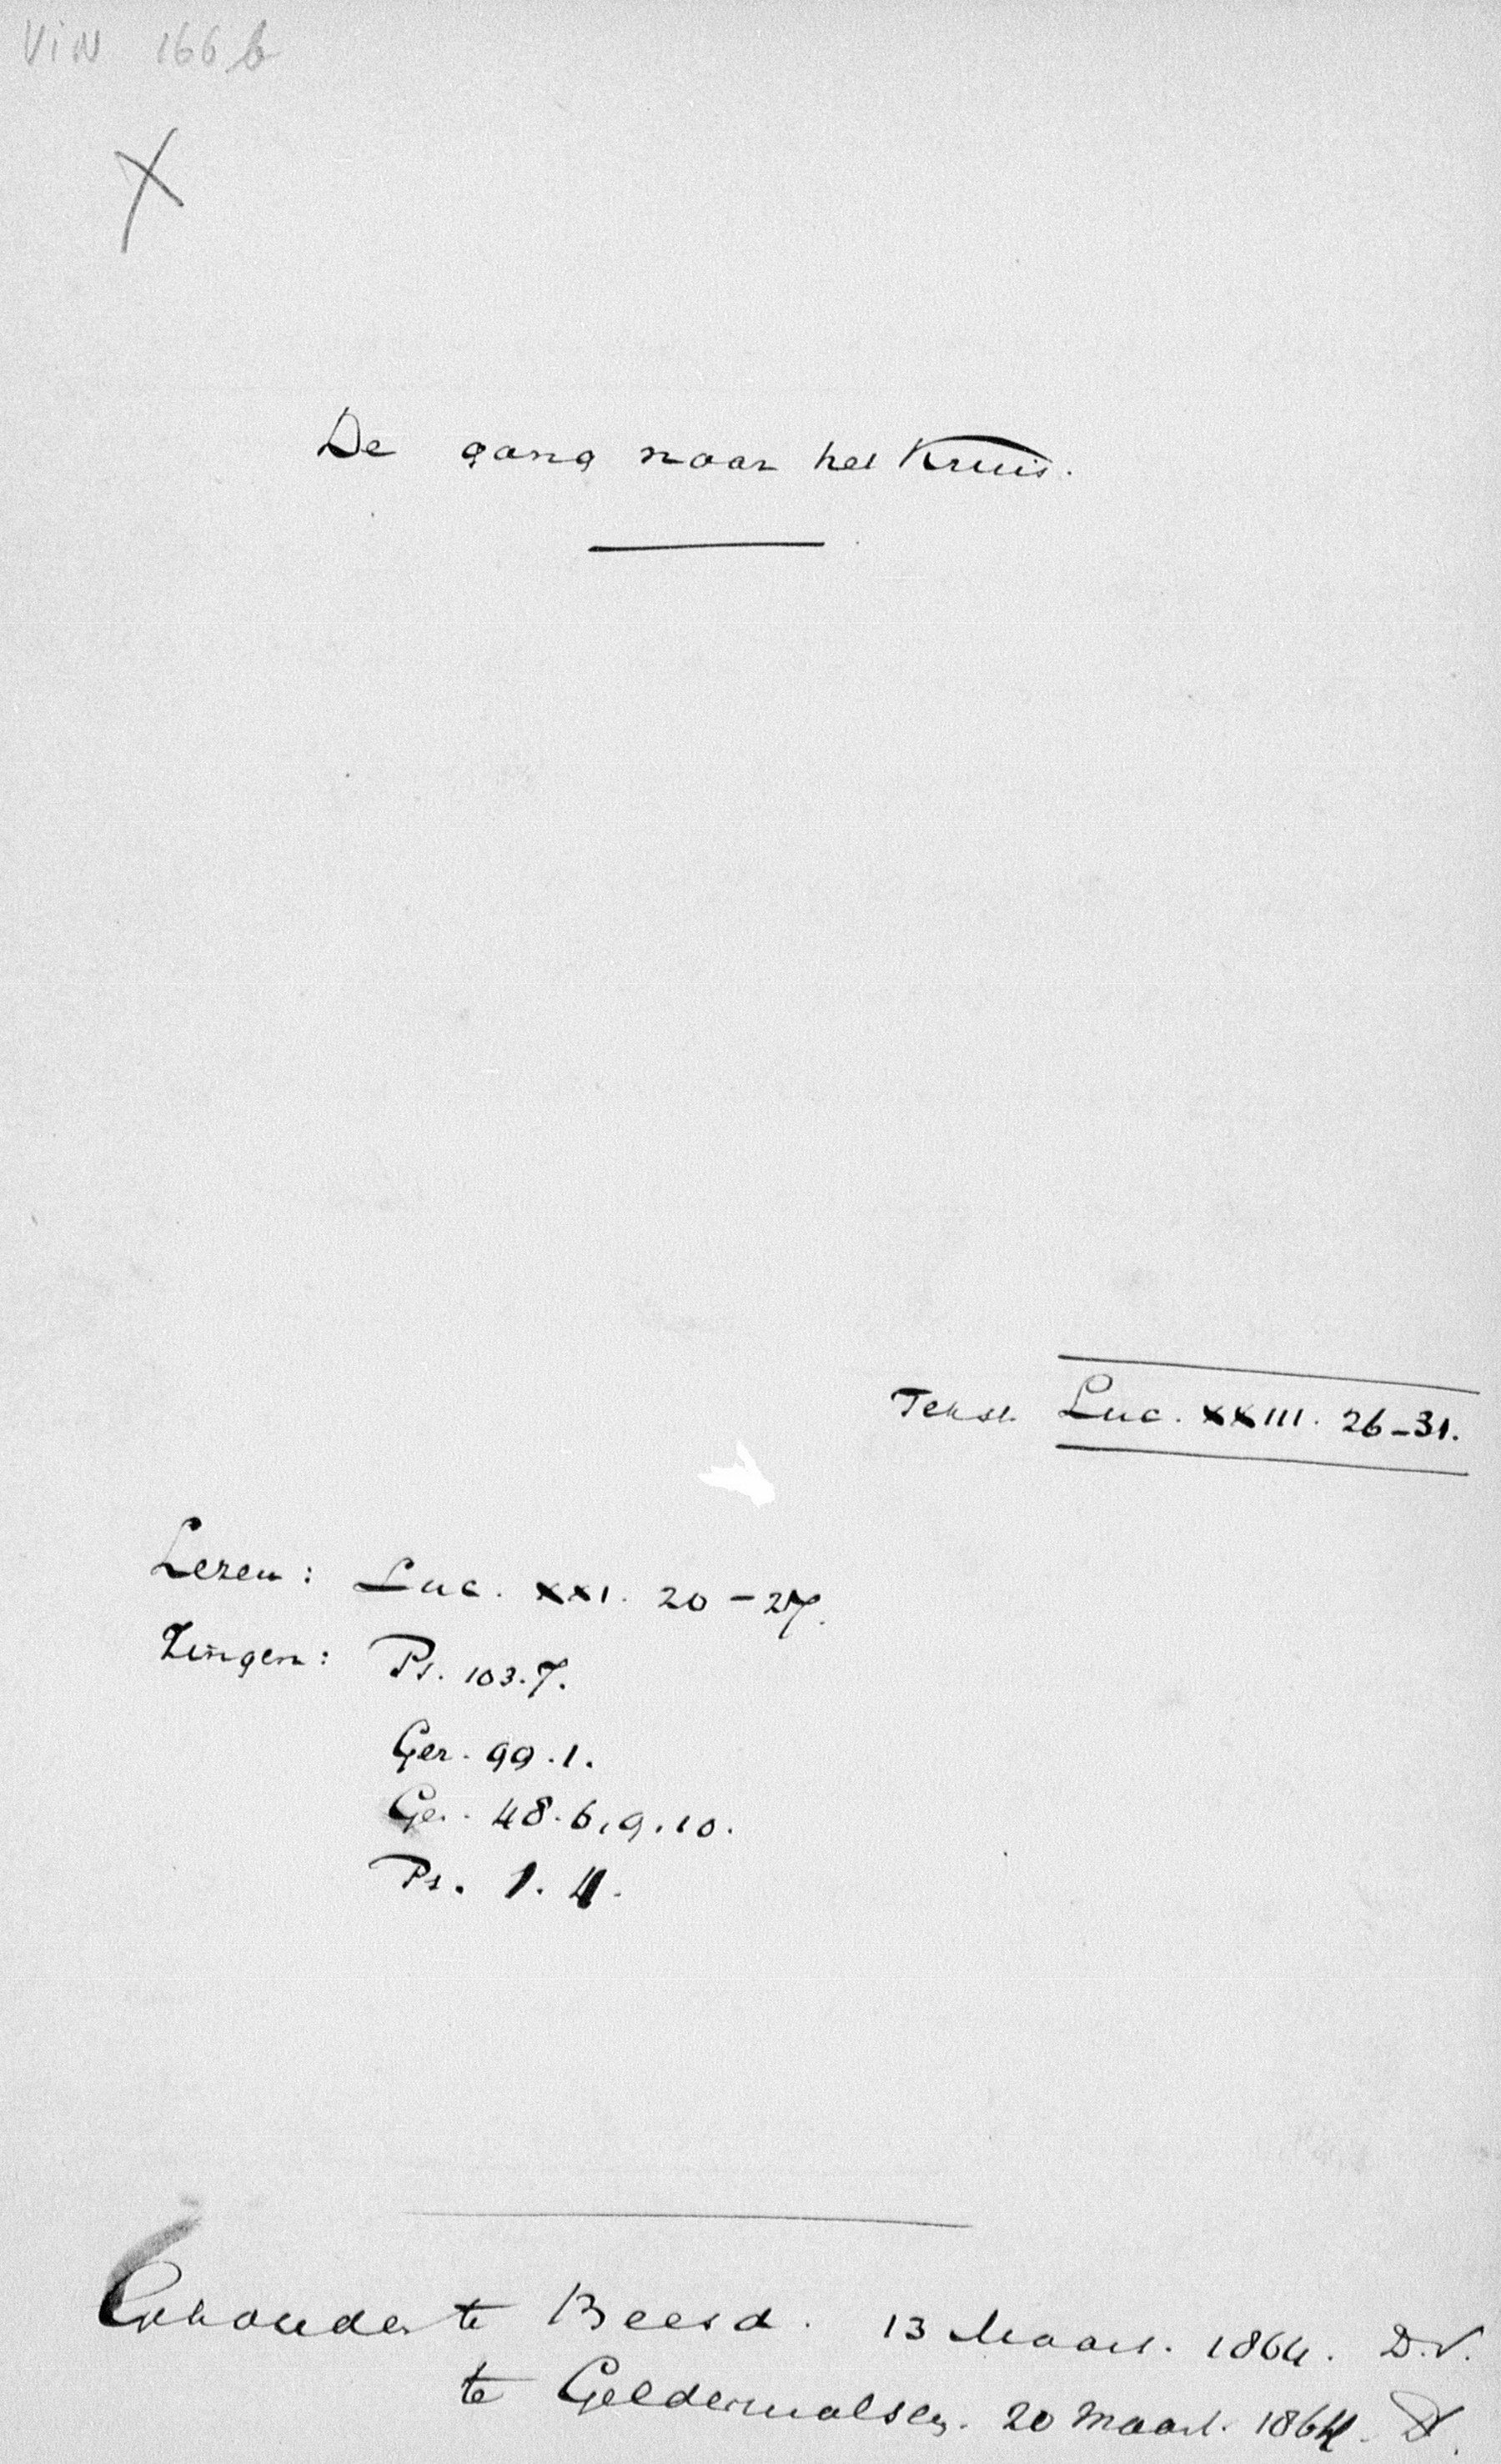 VIN 166 b
X
De gang naar het Kruis.
Tekst. Luc. XXIII. 26-31.
Lezen: Luc. XXI. 20-27.
Zingen: Ps. 103.7.
Gez. 99.1.
Gez. 48.6,9,10.
Ps. 1.4.
Gehouden te Beesd. 13 Maart. 1864. D.V.
te Geldermalsen. 20 Maart. 1864.